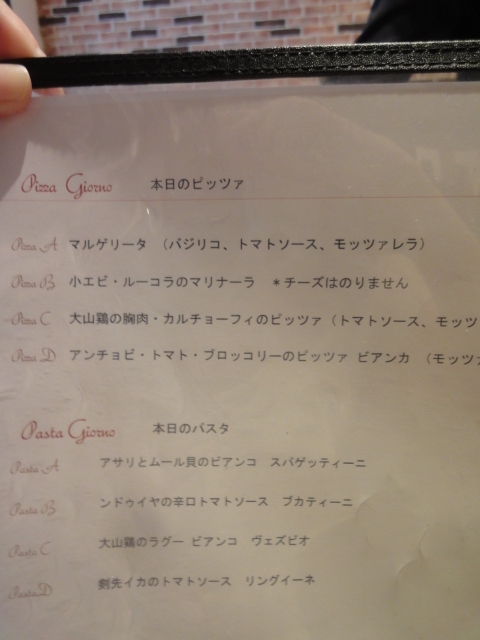 Pizza Giorno 本日のピッツァ
Pizza A マルゲリータ (バジリコ、トマトソース、モッツァレラ)
Pizza B 小エビ・ルーコラのマリナーラ *チーズはのりません
Pizza C 大山鶏の胸肉・カルチョーフィのピッツァ (トマトソース、モッツ
Pizza D アンチョビ・トマト・ブロッコリーのピッツァ ビアンカ (モッツァ
Pasta Giorno 本日のパスタ
Pasta A アサリとムール貝のビアンコ スパゲッティーニ
Pasta B ンドゥイヤの辛口トマトソース ブカティーニ
Pasta C 大山鶏のラグー ビアンコ ヴェズビオ
Pasta D 剣先イカのトマトソース リングイーネ